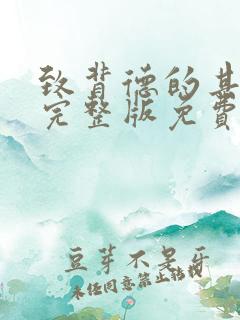 致背德的其
完整版免费
豆芽不是牙
未经同意禁止转载